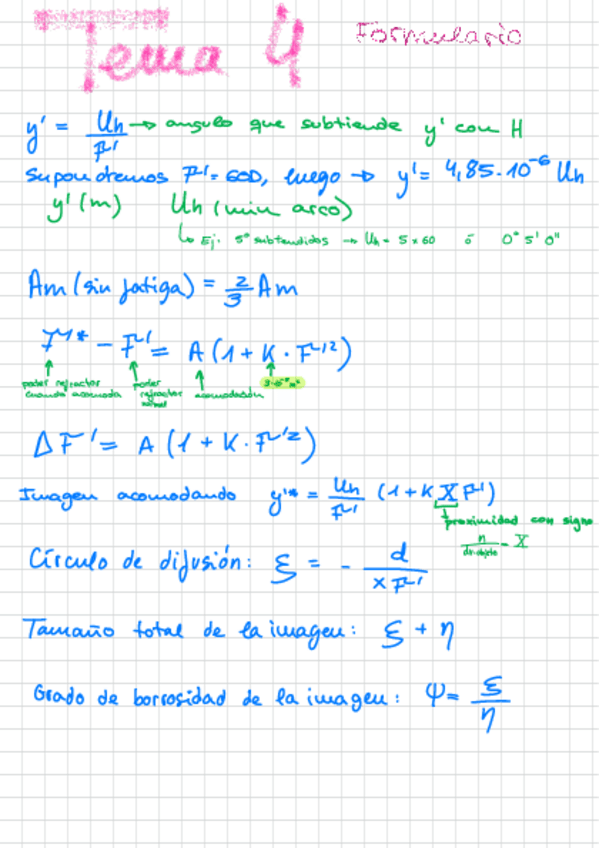 Tema 4 Formulario
y' = Un/F' → angulo que subtiende y' con H
Supondremos F' = 60D, luego → y' = 4,85·10⁻⁶ Un
y' (m) Un (min arco)
↳ Ej. 5° subtendidos → Un = 5×60 ó 0° 5' 0"
Am (sin fatiga) = 2/3 Am
F'* - F' = A (1 + K · F'²)
poder refractor cuando acomoda
poder refractor
acomodación
ΔF' = A (1 + K · F'²)
Imagen acomodando y'* = Un/F' (1 + K X F')
proximidad con signo
n/dir. objeto = X
Círculo de difusión: ξ = - d/(x F')
Tamaño total de la imagen: ξ + η
Grado de borrosidad de la imagen: Ψ = ξ/η